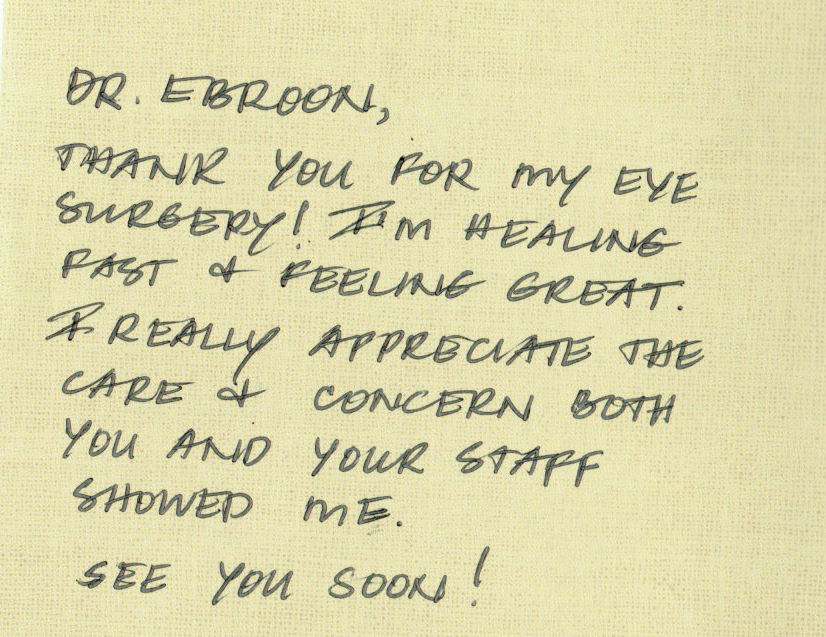 DR. EBROON,
THANK YOU FOR MY EYE
SURGERY! I'M HEALING
FAST & FEELING GREAT.
I REALLY APPRECIATE THE
CARE & CONCERN BOTH
YOU AND YOUR STAFF
SHOWED ME.
SEE YOU SOON!